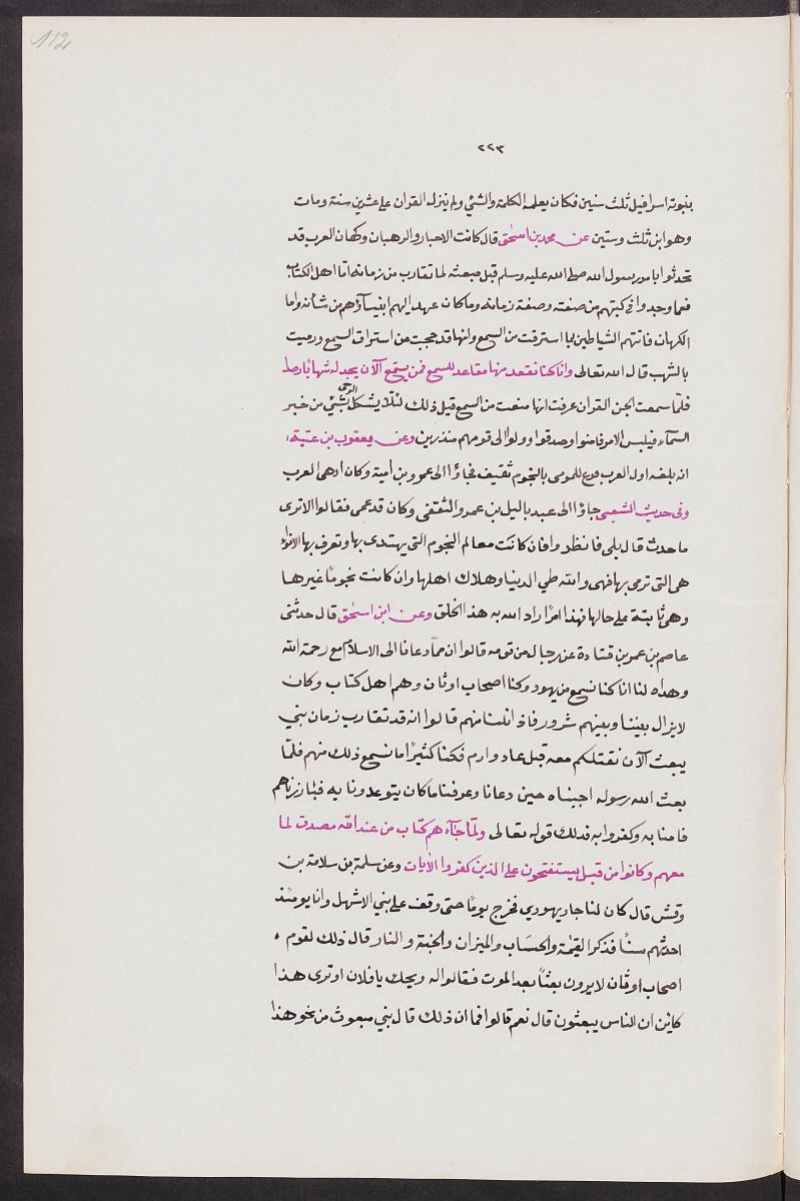 112
٢٢٣
بنبوته اسرافيل ثلث سنين فكان يعلمه الكلمة والشئ ولم ينزله القران على عشرين سنة ومات
وهو ابن ثلث وستين عن محمد بن اسحق قال كانت الاحبار والرهبان وكهان العرب قد
تحدثوا بامور رسول الله صلى الله عليه وسلم قبل مبعثه لما تقارب من زمانه اما اهل الكتاب
فعما وجدوا في كتبهم من صفته وصفة زمانه وما كان عهد اليهم انبياؤهم من شأنه واما
الكهان فاتتهم الشياطين بما استرقت من السمع وانها قد حجبت من استراق السمع ورميت
بالشهب قال الله تعالى وانا كنا نقعد منها مقاعد للسمع فمن يستمع الآن يجد له شهابًا رصدا
فلما سمعت الجن القران عرفت انها منعت من السمع قبل ذلك لئلا يشكل الوحي بشئ من خبر
السمآء فيلبس الامر فامنوا وصدقوا وولوا الى قومهم منذرين وعن يعقوب بن عتبة
انه بلغه اول العرب فزع للرمى بالنجوم ثقيف فجاؤا الى عمرو بن أمية وكان ادهى العرب
وفى حديث الشعبى جاؤا الى عبد ياليل بن عمرو الثقفى وكان قد عمى فقالوا الا ترى
ما حدث قال بلى فانظروا فان كانت معالم النجوم التى يهتدى بها وتعرف بها الانواء
هى التى ترمى بها فهى والله طي الدنيا وهلاك اهلها وان كانت نجومًا غيرها
وهى ثابتة على حالها فهذا امرًا راد الله به هذا الخلق وعن ابن اسحق قال حدثنى
عاصم بن عمر بن قتادة عن رجال من قومه قالوا ان مما دعانا الى الاسلام مع رحمة الله
وهداه لنا انا كنا نسمع من يهود وكنا اصحاب اوثان وهم اهل كتاب وكان
لا يزال بيننا وبينهم شرور فاذا نلنا منهم قالوا انه قد تقارب زمان نبي
يبعث الآن نقتلكم معه قبل عاد وارم فكنا كثيرًا ما نسمع ذلك منهم فلما
بعث الله رسوله اجبناه حين دعانا وعرفنا ما كان يتوعدونا به فبارزناهم
فامنا به وكفروا به فذلك قوله تعالى ولما جآءهم كتاب من عند الله مصدق لما
معهم وكانوا من قبل يستفتحون على الذين كفروا الآيات وعن سلمة بن سلامة بن
وقش قال كان لنا جار يهودي فخرج يومًا حتى وقف على بني الاشهل وانا يومئذ
احدثهم سنًا فذكر القيمة والحساب والميزان والجنة والنار قال ذلك لقوم
اصحاب اوثان لا يرون بعثًا بعد الموت فقالوا له ويحك يا فلان او ترى هذا
كاين ان الناس يبعثون قال نعم قالوا فما ان ذلك قال نبي مبعوث من نحو هذا